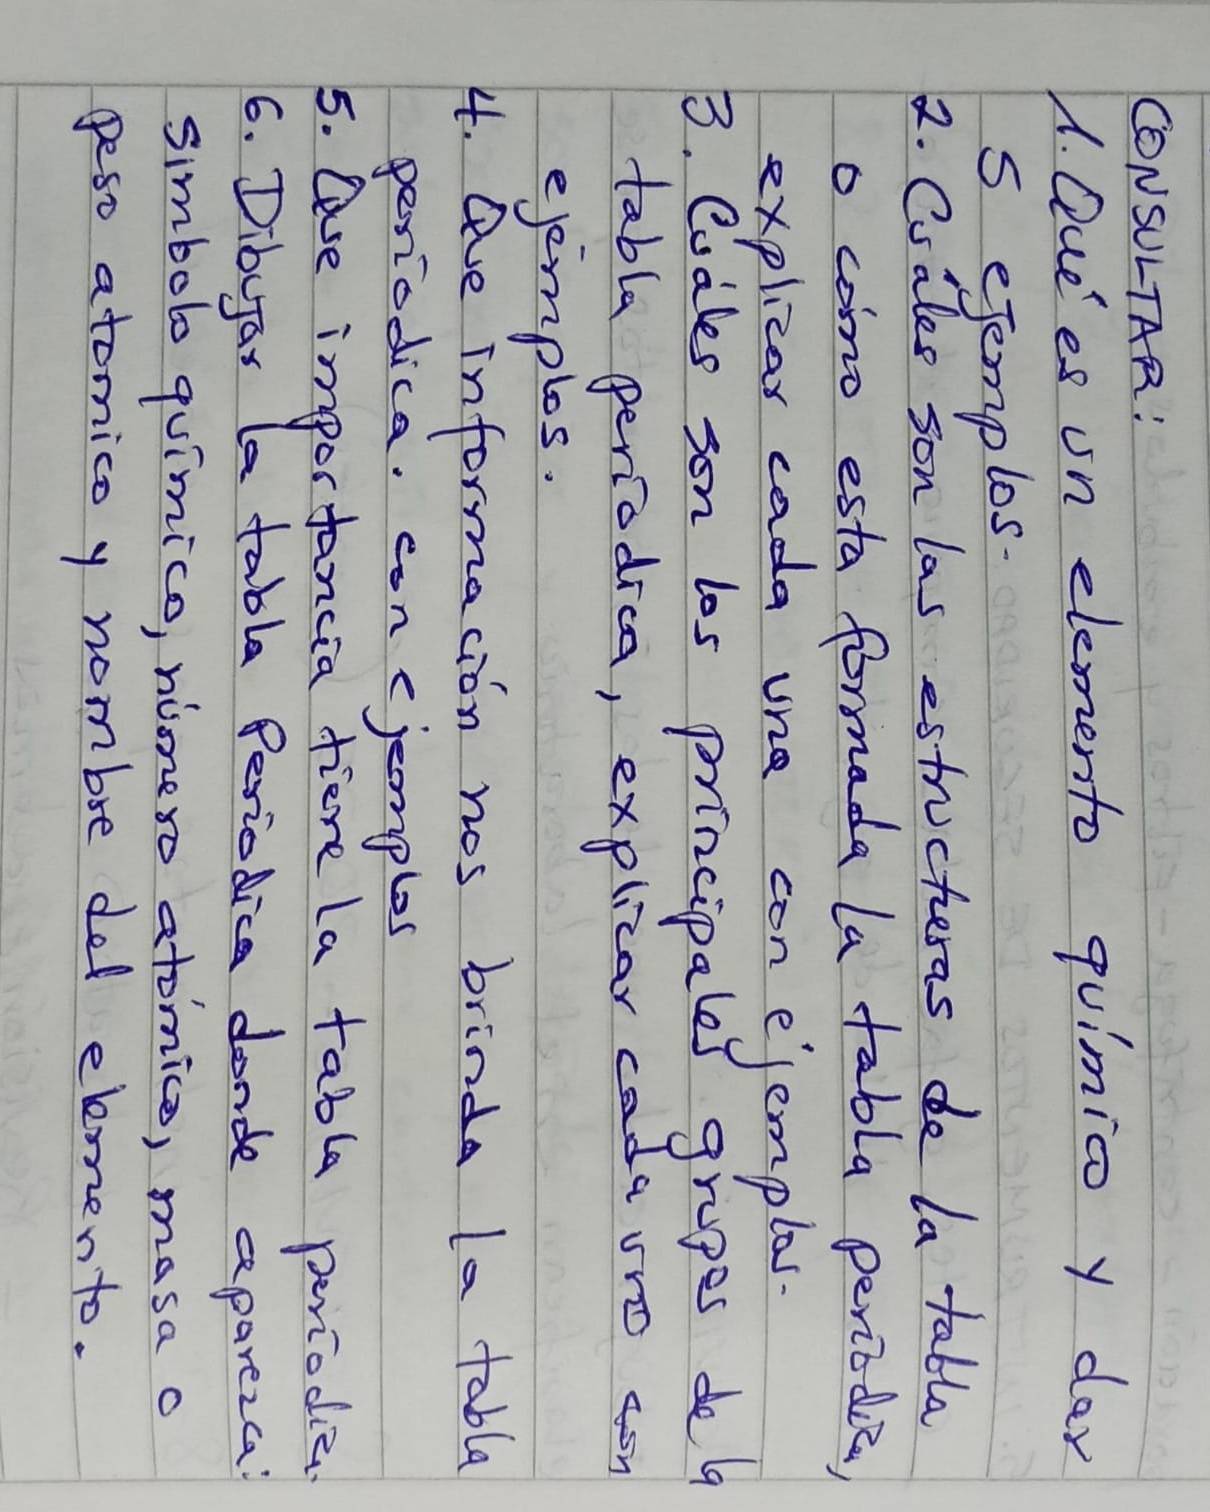 CONSULTAR:
1. Qué es un elemento químico y dar
5 ejemplos.
2. Cuáles son las estructuras de la tabla
o cómo esta formada la tabla periódica,
explicar cada una con ejemplos.
3. Cuáles son los principales grupos de la
tabla periódica, explicar cada uno con
ejemplos.
4. Que información nos brinda la tabla
periodica. con ejemplos
5. Que importancia tiene la tabla periodica.
6. Dibujar la tabla Periodica donde aparezca:
Simbolo químico, número atómico, masa o
peso atomico y nombre del elemento.